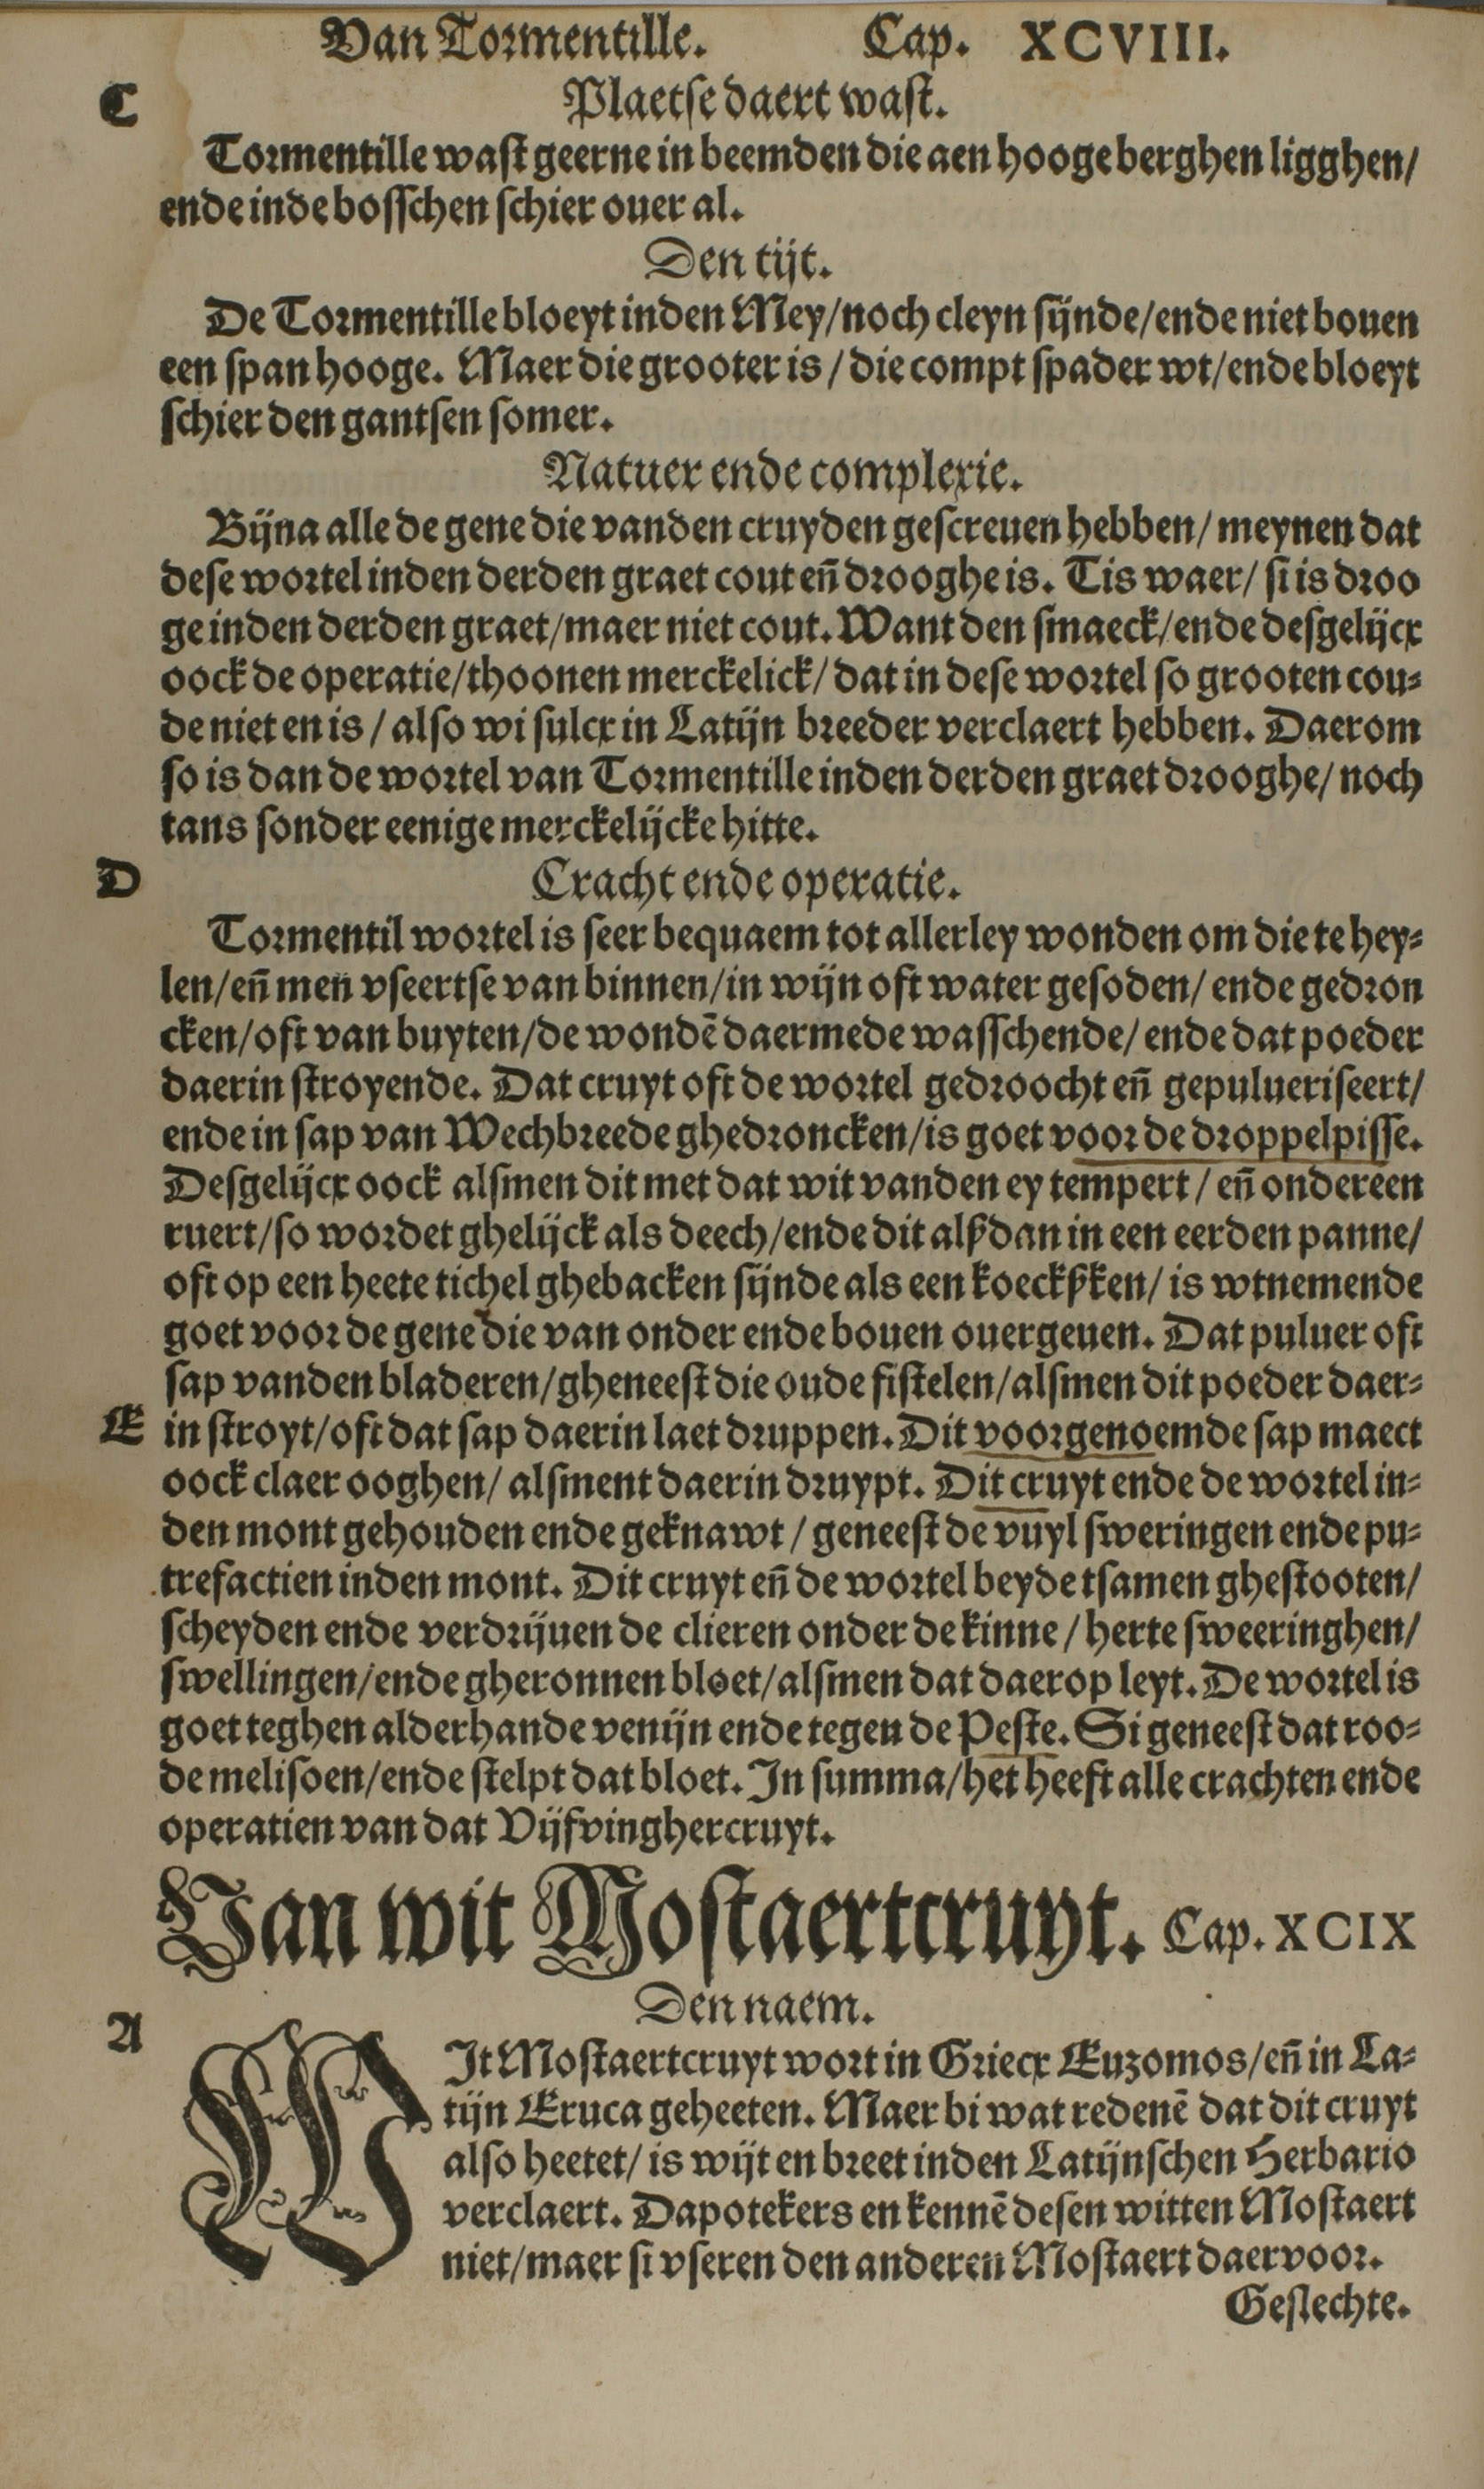 Van Tormentille. Cap. XCVIII.
C
Plaetse daert wast.
Tormentille wast geerne in beemden die aen hooge berghen ligghen/
ende inde bosschen schier ouer al.
Den tijt.
De Tormentille bloeyt inden Mey/noch cleyn sijnde/ende niet bouen
een span hooge. Maer die grooter is/die compt spader wt/ende bloeyt
schier den gantsen somer.
Natuer ende complexie.
Bijna alle de gene die vanden cruyden gescreuen hebben/meynen dat
dese wortel inden derden graet cout eñ drooghe is. Tis waer/si is droo
ge inden derden graet/maer niet cout. Want den smaeck/ende desgelijcx
oock de operatie/thoonen merckelick/dat in dese wortel so grooten cou-
de niet en is/also wi sulcx in Latijn breeder verclaert hebben. Daerom
so is dan de wortel van Tormentille inden derden graet drooghe/noch
tans sonder eenige merckelijcke hitte.
D
Cracht ende operatie.
Tormentil wortel is seer bequaem tot allerley wonden om die te hey-
len/eñ men vseertse van binnen/in wijn oft water gesoden/ende gedron
cken/oft van buyten/de wondē daermede wasschende/ende dat poeder
daerin stroyende. Dat cruyt oft de wortel gedroocht eñ gepulueriseert/
ende in sap van Wechbreede ghedroncken/is goet voor de droppelpisse.
Desgelijcx oock alsmen dit met dat wit vanden ey tempert/eñ ondereen
ruert/so wordet ghelijck als deech/ende dit alsdan in een eerden panne/
oft op een heete tichel ghebacken sijnde als een koecksken/is wtnemende
goet voor de gene die van onder ende bouen ouergeuen. Dat puluer oft
sap vanden bladeren/gheneest die oude fistelen/alsmen dit poeder daer-
E
in stroyt/oft dat sap daerin laet druppen. Dit voorgenoemde sap maect
oock claer ooghen/alsment daerin druypt. Dit cruyt ende de wortel in-
den mont gehouden ende geknawt/geneest de vuyl sweringen ende pu-
trefactien inden mont. Dit cruyt eñ de wortel beyde tsamen ghestooten/
scheyden ende verdrijuen de clieren onder de kinne/herte sweeringhen/
swellingen/ende gheronnen bloet/alsmen dat daer op leyt. De wortel is
goet teghen alderhande venijn ende tegen de Peste. Si geneest dat roo-
de melisoen/ende stelpt dat bloet. In summa/het heeft alle crachten ende
operatien van dat Vijfvinghercruyt.
Van wit Mostaertcruyt. Cap. XCIX
Den naem.
A
WIt Mostaertcruyt wort in Griecx Euzomos/eñ in La-
tijn Eruca geheeten. Maer bi wat redenē dat dit cruyt
also heetet/is wijt en breet inden Latijnschen Herbario
verclaert. Dapotekers en kennē desen witten Mostaert
niet/maer si vseren den anderen Mostaert daervoor.
Geslechte.